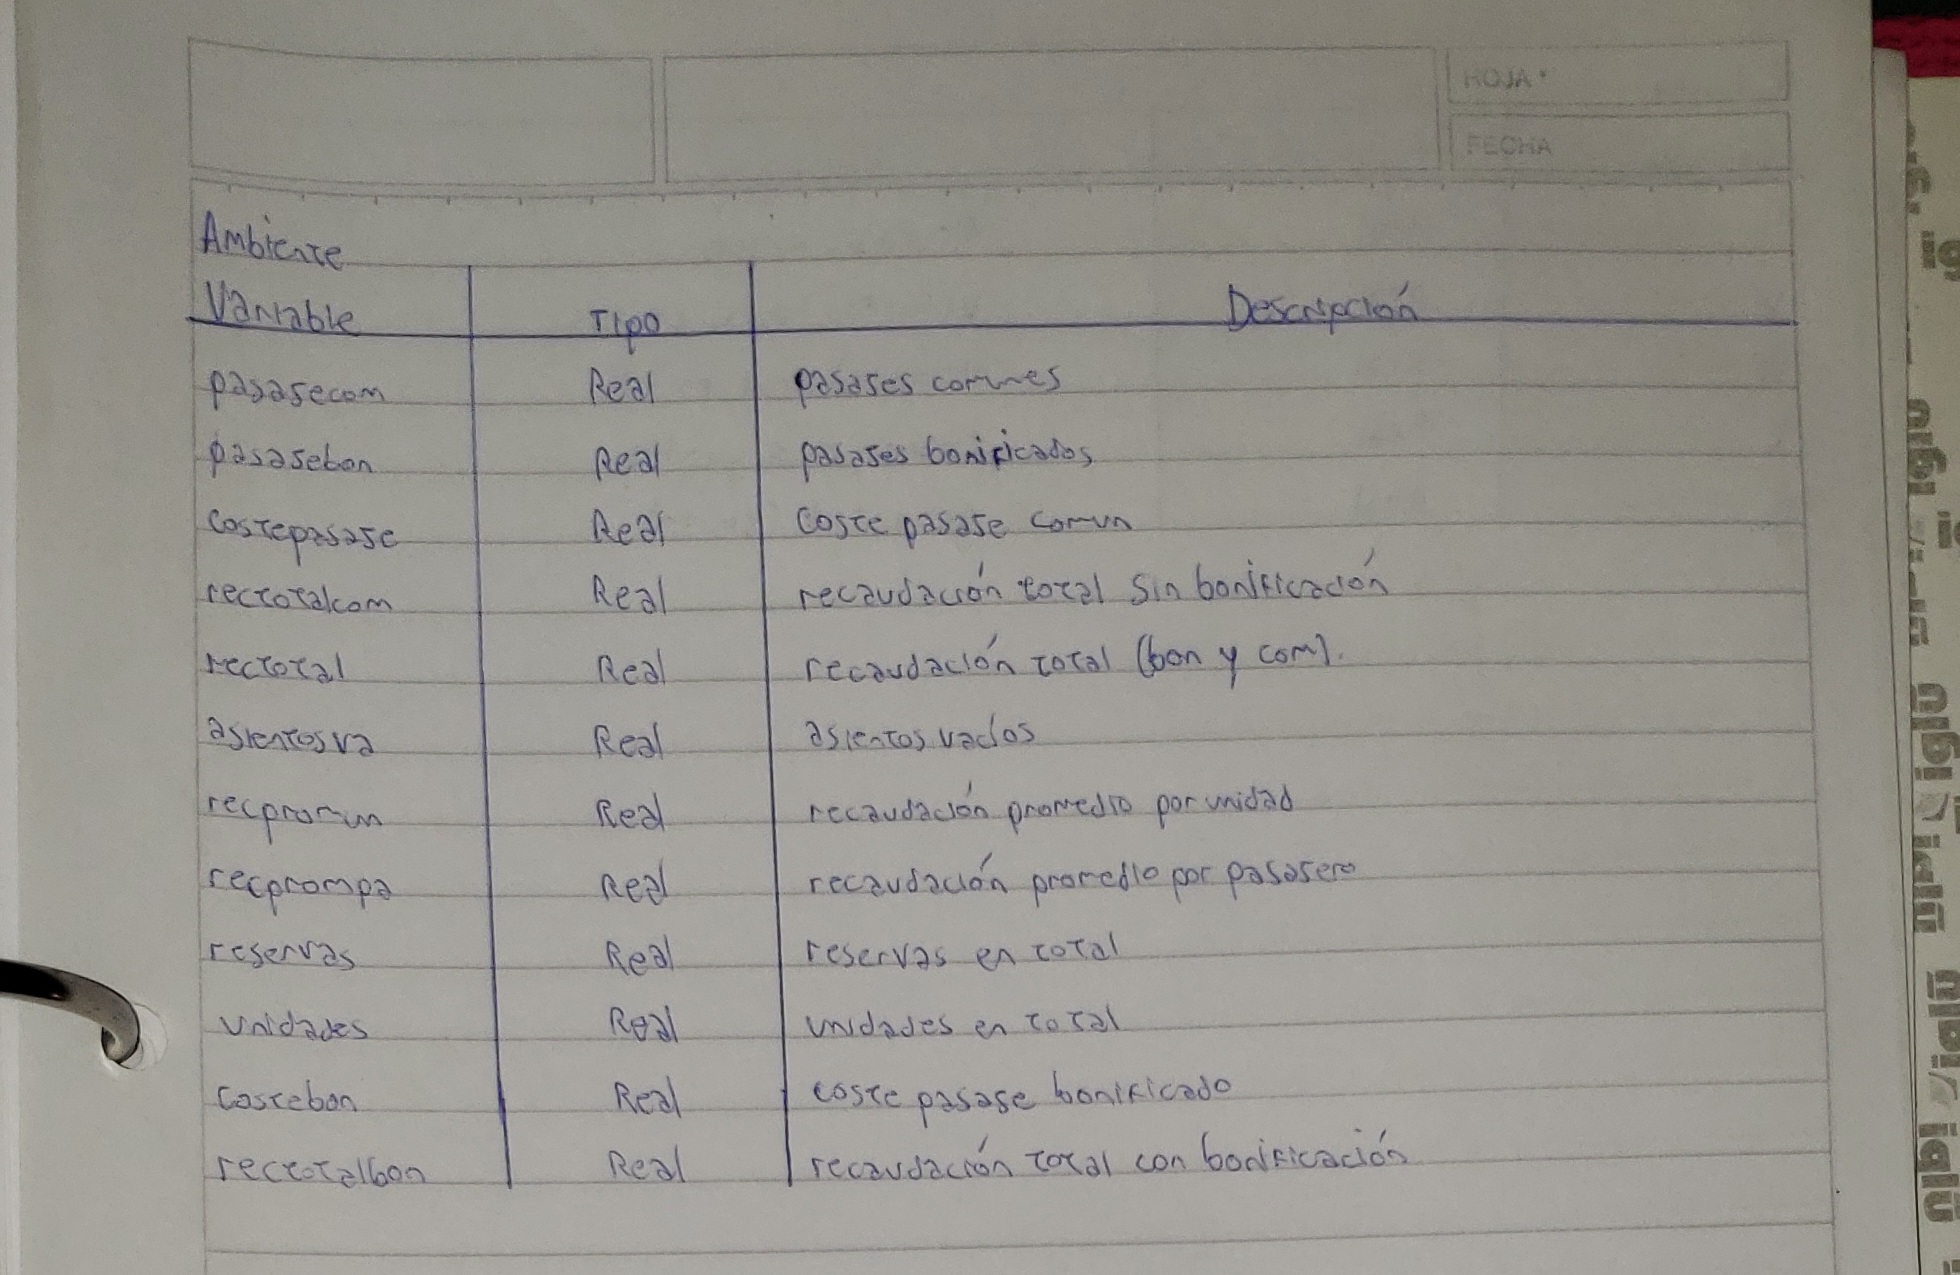 HOJA
FECHA
Ambiente
Variable Tipo Descripción
pasajecom Real pasajes comunes
pasajebon Real pasajes bonificados
costepasaje Real coste pasaje comun
rectotalcom Real recaudación total sin bonificación
rectotal Real recaudación total (bon y com).
asientosva Real asientos vacíos
recpromun Real recaudación promedio por unidad
recprompa Real recaudación promedio por pasajero
reservas Real reservas en total
unidades Real unidades en total
costebon Real coste pasaje bonificado
rectotalbon Real recaudación total con bonificación